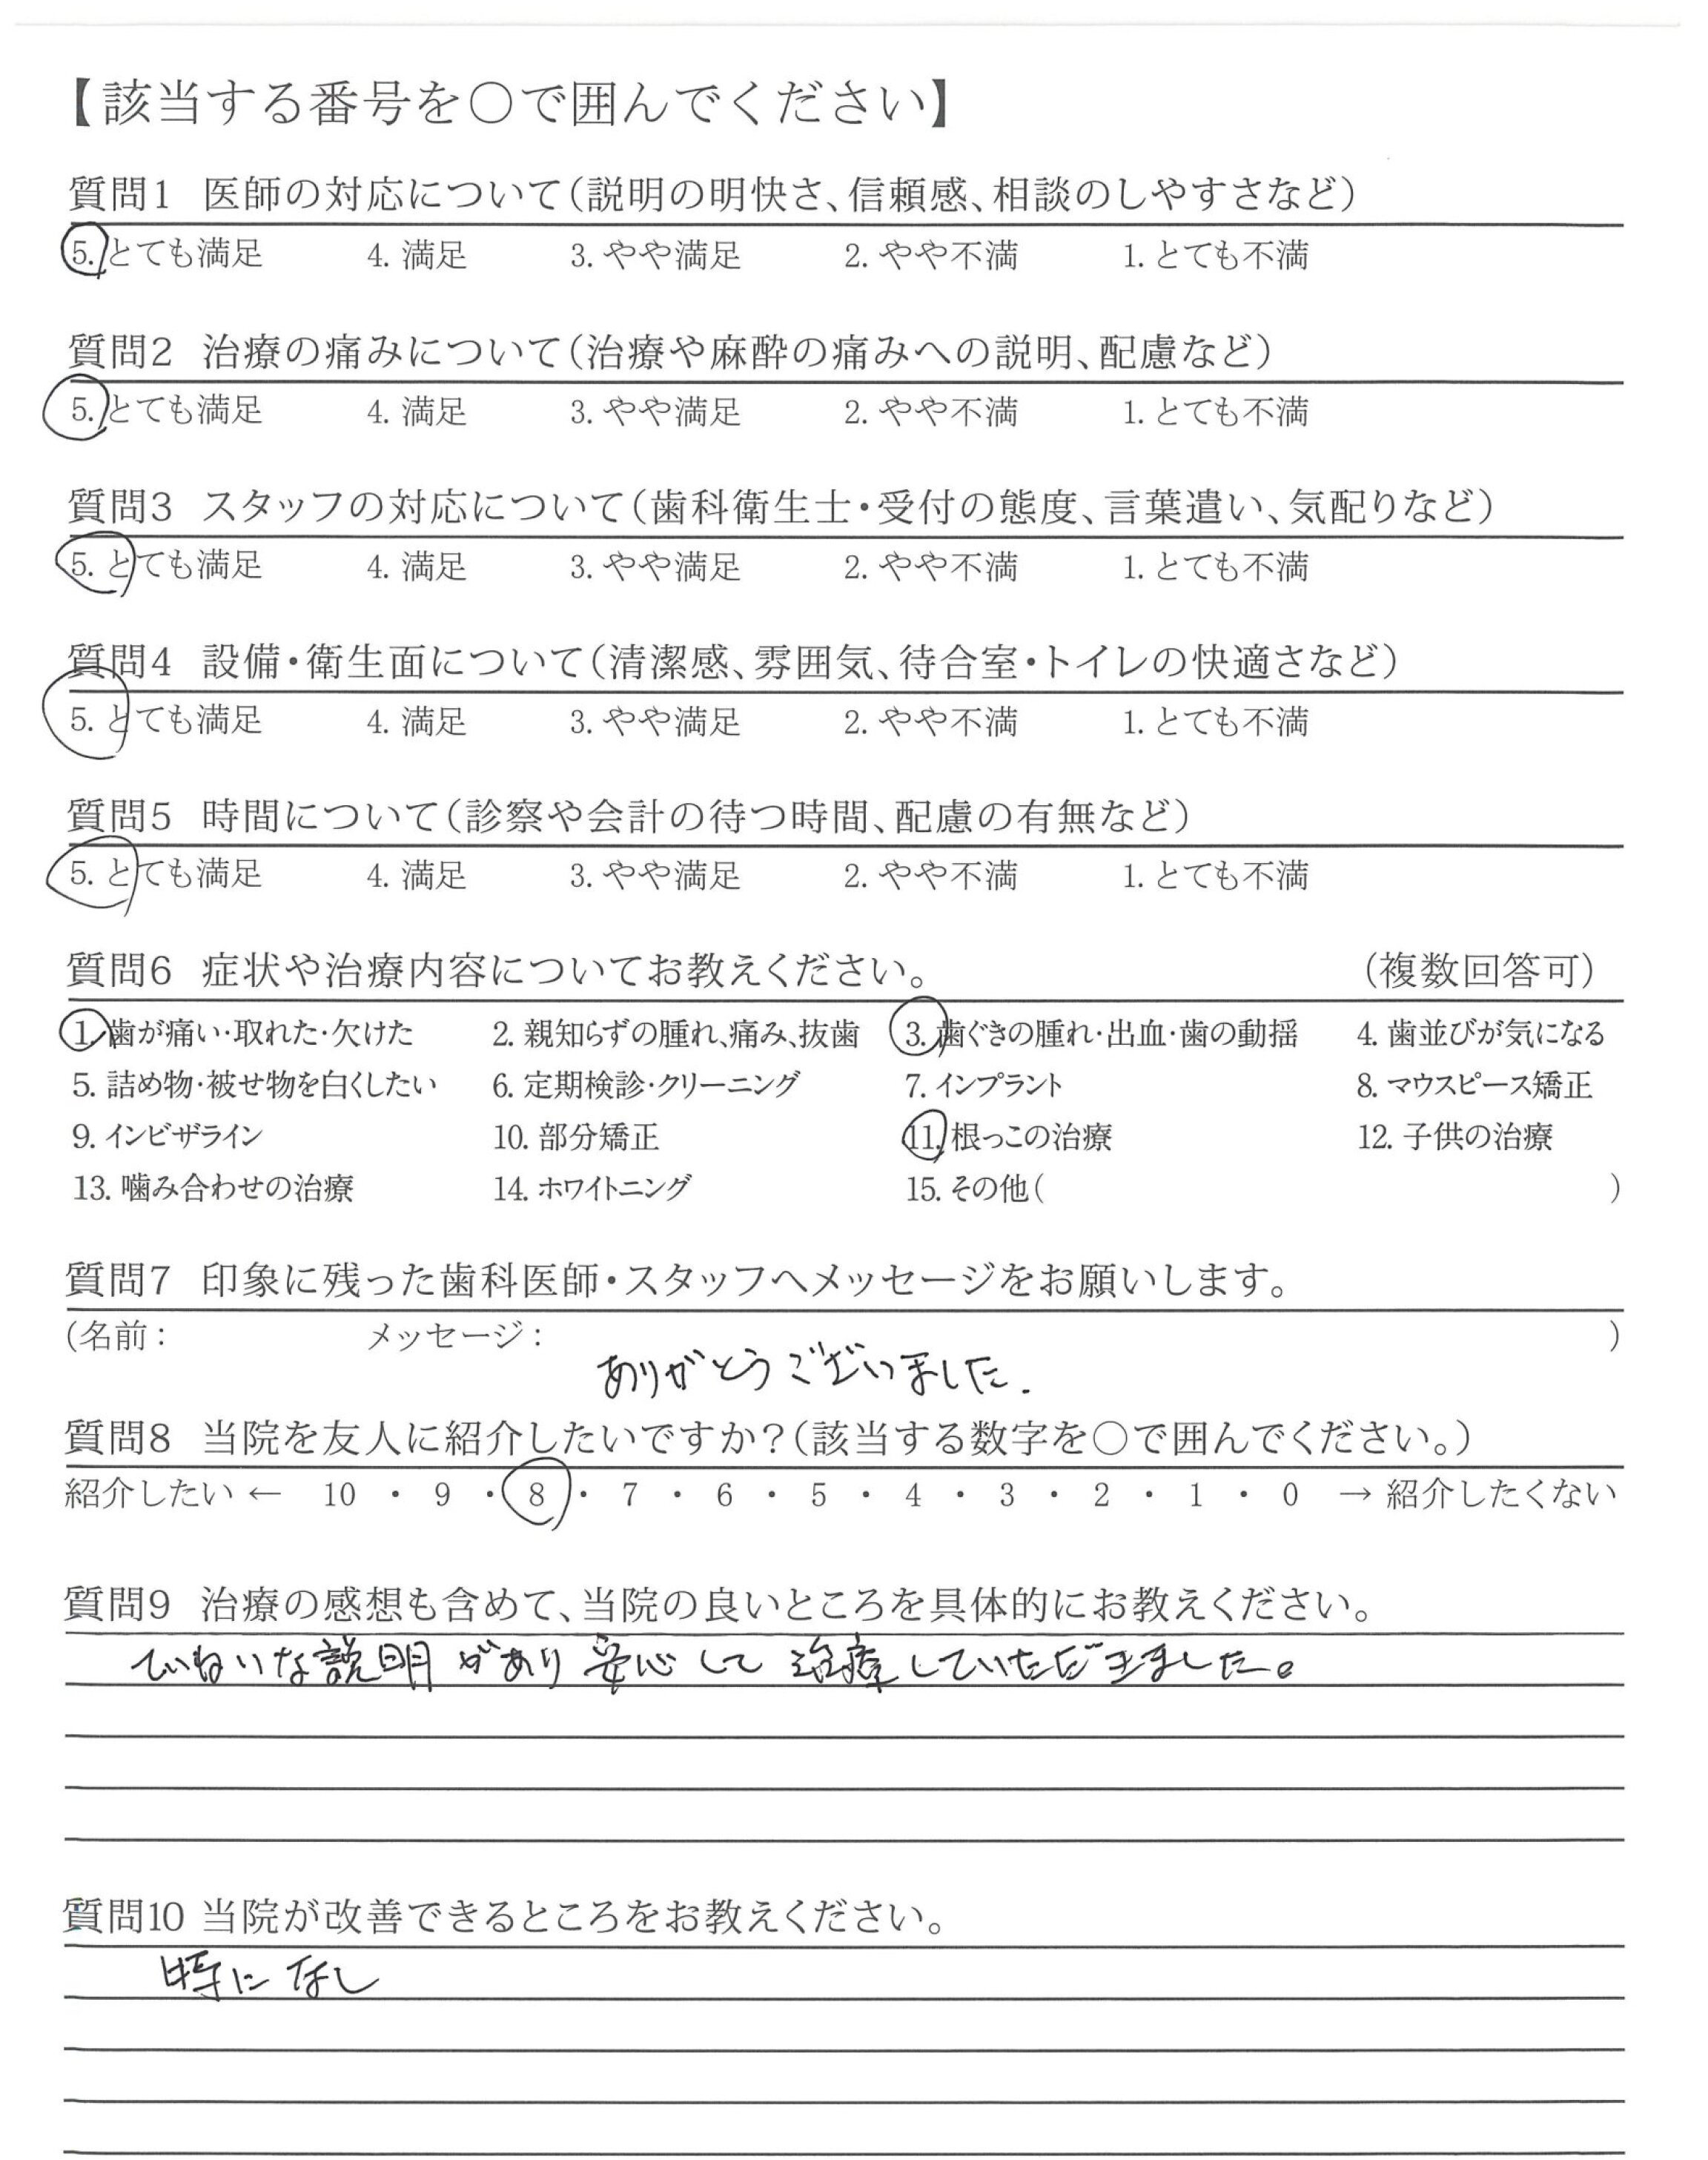 【該当する番号を○で囲んでください】
質問1 医師の対応について(説明の明快さ、信頼感、相談のしやすさなど)
5. とても満足 4. 満足 3. やや満足 2. やや不満 1. とても不満
質問2 治療の痛みについて(治療や麻酔の痛みへの説明、配慮など)
5. とても満足 4. 満足 3. やや満足 2. やや不満 1. とても不満
質問3 スタッフの対応について(歯科衛生士・受付の態度、言葉遣い、気配りなど)
5. とても満足 4. 満足 3. やや満足 2. やや不満 1. とても不満
質問4 設備・衛生面について(清潔感、雰囲気、待合室・トイレの快適さなど)
5. とても満足 4. 満足 3. やや満足 2. やや不満 1. とても不満
質問5 時間について(診察や会計の待つ時間、配慮の有無など)
5. とても満足 4. 満足 3. やや満足 2. やや不満 1. とても不満
質問6 症状や治療内容についてお教えください。 (複数回答可)
1. 歯が痛い・取れた・欠けた 2. 親知らずの腫れ、痛み、抜歯 3. 歯ぐきの腫れ・出血・歯の動揺 4. 歯並びが気になる
5. 詰め物・被せ物を白くしたい 6. 定期検診・クリーニング 7. インプラント 8. マウスピース矯正
9. インビザライン 10. 部分矯正 11. 根っこの治療 12. 子供の治療
13. 噛み合わせの治療 14. ホワイトニング 15. その他( )
質問7 印象に残った歯科医師・スタッフへメッセージをお願いします。
(名前: メッセージ: )
ありがとうございました.
質問8 当院を友人に紹介したいですか?(該当する数字を○で囲んでください。)
紹介したい ← 10 ・ 9 ・ 8 ・ 7 ・ 6 ・ 5 ・ 4 ・ 3 ・ 2 ・ 1 ・ 0 → 紹介したくない
質問9 治療の感想も含めて、当院の良いところを具体的にお教えください。
ていねいな説明があり安心して治療していただきました。
質問10 当院が改善できるところをお教えください。
特になし